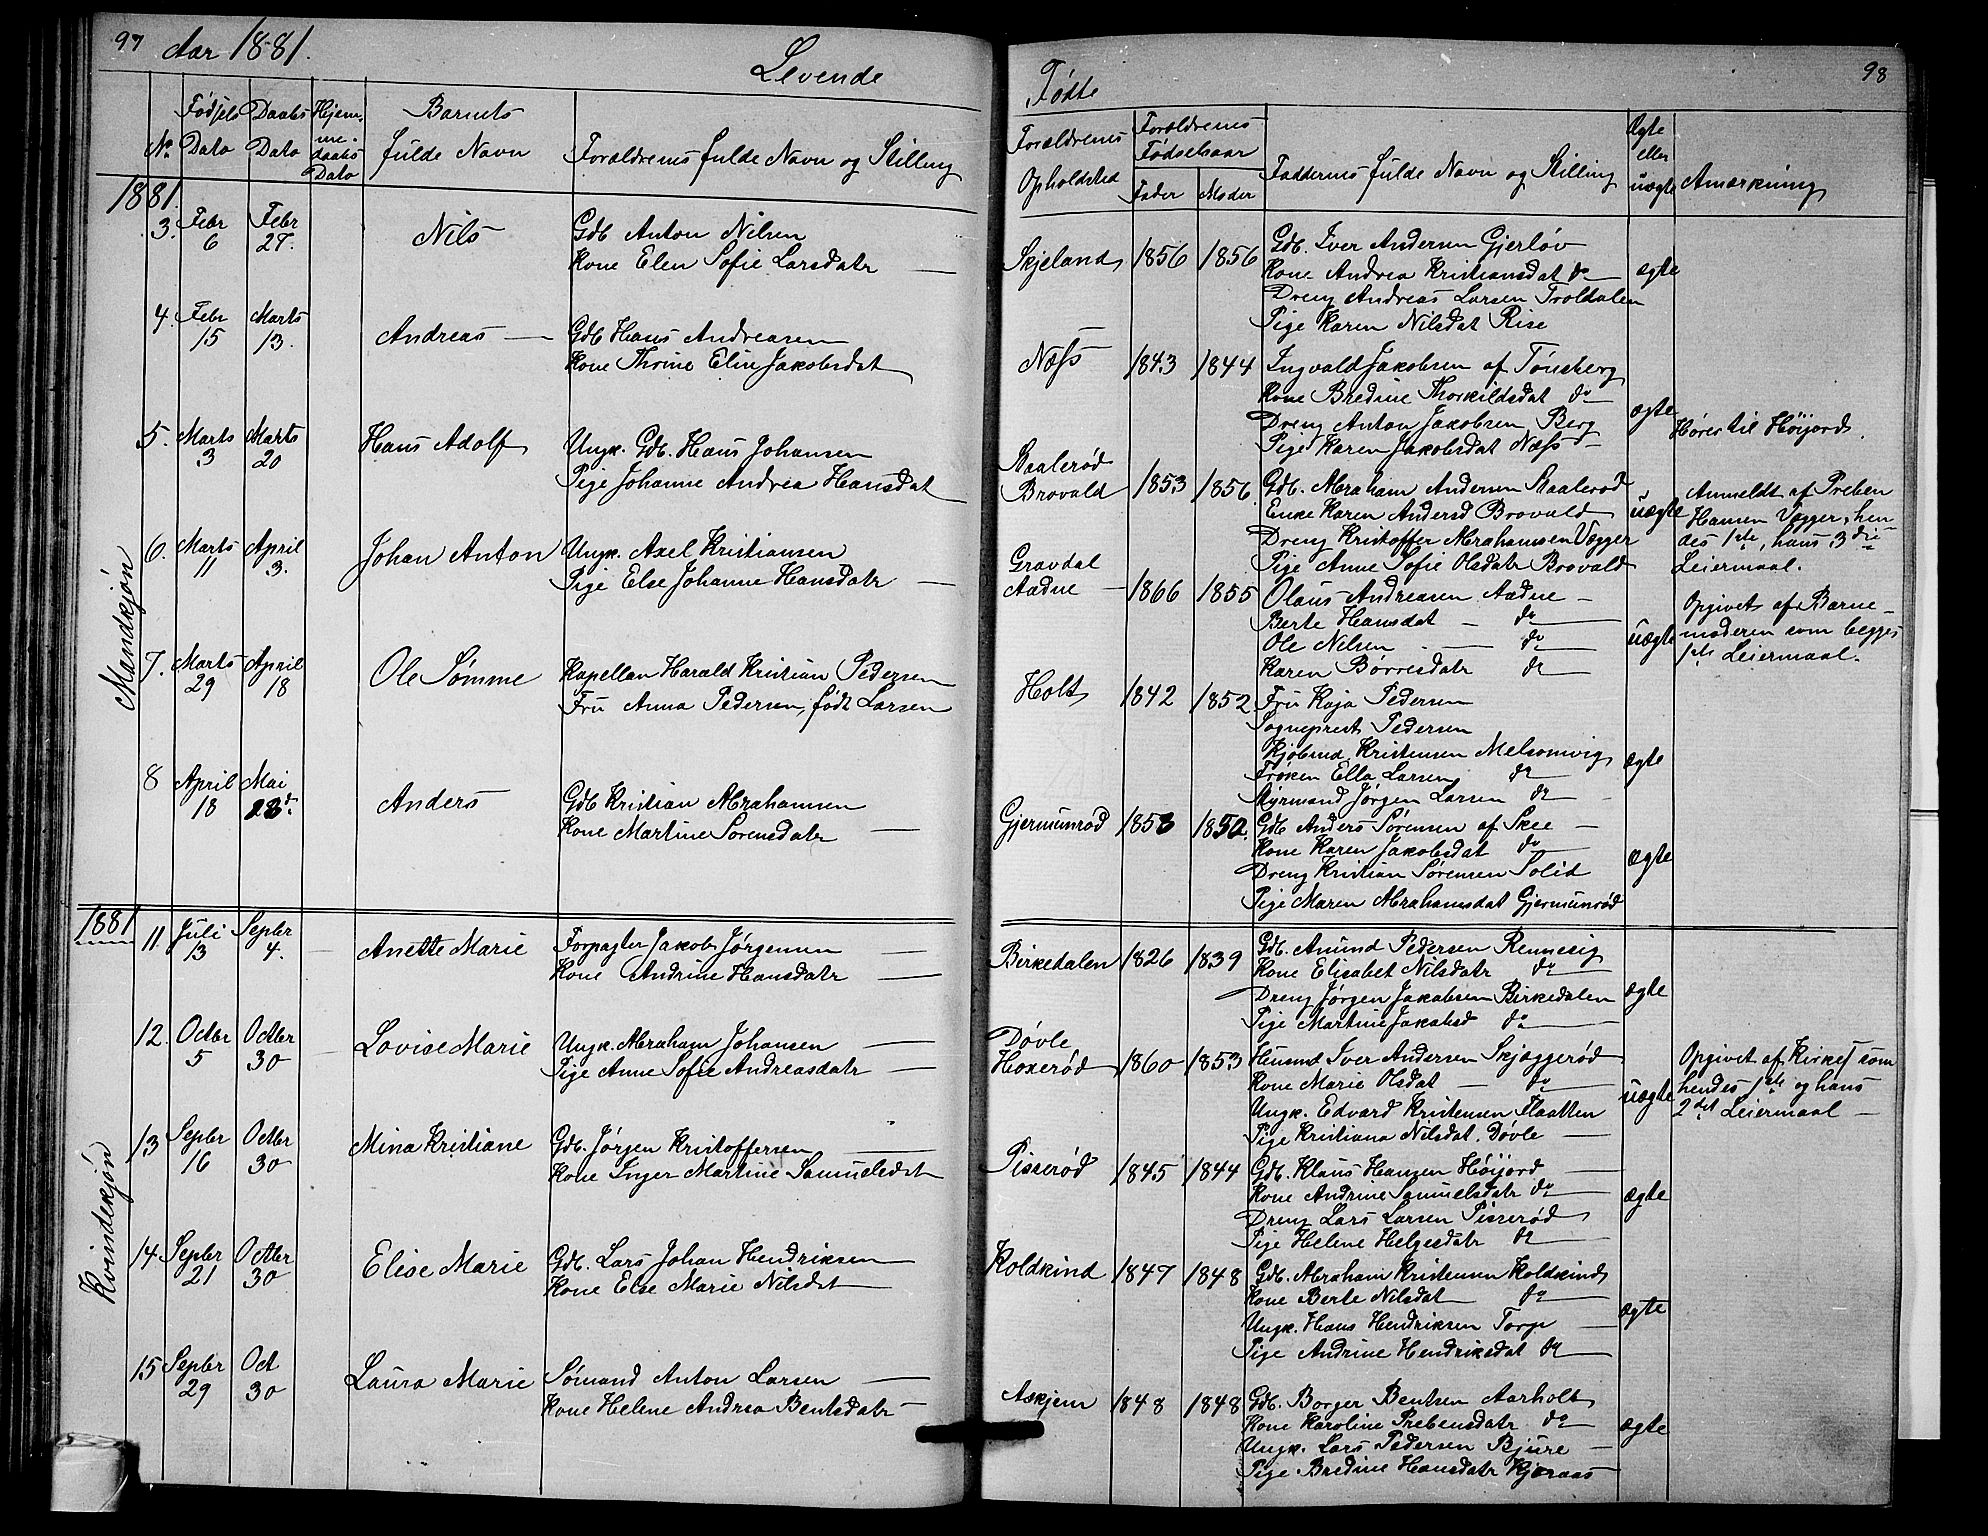 97 Aar 1881. Levende
No. Fødsels Dato Daabs Dato Hjemme-daabs Dato Barnets fulde Navn Forældrenes fulde Navn og Stilling
1881.
Mandkjøn
3. Febr 6 Febr 27. Nils Gdb Anton Nilsen
Kone Elen Sofie Larsdatr
4. Febr 15 Marts 13. Andreas Gdb Hans Andreasen
Kone Thrine Elin Jakobsdat
5. Marts 3 Marts 20 Hans Adolf Ungk. Gdb. Hans Johansen
Pige Johanne Andrea Hansdat
6. Marts 11 April 3. Johan Anton Ungk. Axel Kristiansen
Pige Else Johanne Hansdatr
7. Marts 29 April 18 Ole Sømme Kapellan Harald Kristian Pedersen
Fru Anna Pedersen, født Larsen
8 April 18 Mai Anders Gdb Kristian Abrahamsen
Kone Martine Sørensdatr
1881
Kvindekjøn
11 Juli 13 Septbr 4. Anette Marie Forpagter Jakob Jørgensen
Kone Andrine Hansdatr
12. Octbr 5 Octbr 30 Lovise Marie Ungk. Abraham Johansen
Pige Anne Sofie Andreasdatr
13 Septbr 16 Octbr 30 Mina Kristiane Gdb. Jørgen Kristoffersen
Kone Inger Martine Samuelsdat
14. Septbr 21 Octbr 30 Elise Marie Gdb. Lars Johan Hendriksen
Kone Else Marie Nilsdat
15 Septbr 29 Oct 30 Laura Marie Sømand Anton Larsen
Kone Helene Andrea Bentsdatr
Fødte 98
Forældrenes Opholdsted Forældrenes Fødselsaar Fader Moder Faddernes fulde Navn og Stilling Ægte eller uægte Anmærkning
Skjeland 1856 1856 Gdb. Iver Andersen Gjerløv ægte
Kone Andrea Kristiansdat do
Dreng Andreas Larsen Troldalen
Pige Karen Nilsdat Rise
Næss 1843 1844 Ingvald Jakobsen af Tønsberg ægte
Kone Bredine Thorkildsdat do
Dreng Anton Jakobsen Berg
Pige Karen Jakobsdat Næss
Hører til Høijord.
Raalerød
Brovald 1853 1856 Gdb. Abraham Andersen Raalerød uægte
Enke Karen Andersd Brovald
Dreng Kristoffer Abrahamsen Vegger
Pige Anne Sofie Olsdatr Brovald
Anmeldt af Preben
Hansen Vegger, hen
des 1ste, hans 3die
Leiermaal.
Gravdal
Aadne 1866 1855 Olaus Andreasen Aadne uægte
Berte Hansdat do
Ole Nilsen do
Karen Børresdatr do
Opgivet af Barne-
moderen som begges
1ste Leiermaal.
Holt 1842 1852 Fru Kaja Pedersen ægte
Sogneprest Pedersen
Kjøbmd Kristensen Melsomvig
Frøken Ella Larsen do
Styrmand Jørgen Larsen do
Gjermunrød 1853 1852. Gdb Anders Sørensen af Skee ægte
Kone Karen Jakobsdat do
Dreng Kristian Sørensen Solid
Pige Maren Abrahamsdat Gjermunrød
Birkedalen 1826 1839 Gdb. Amund Pedersen Rennesig ægte
Kone Elisabet Nilsdatr do
Dreng Jørgen Jakobsen Birkedalen
Pige Martine Jakobsd do
Døvle
Hoxerød 1860 1853 Husmd Iver Andersen Skjæggerød uægte
Kone Marie Olsdat do
Ungk. Edvard Kristensen Flaatten
Pige Kristiana Nilsdat. Døvle
Opgivet af Kirkes. som
hendes 1ste og hans
2det Leiermaal
Pisserød 1845 1844 Gdb. Klaus Hansen Høijord ægte
Kone Andrine Samuelsdatr do
Dreng Lars Larsen Pisserød
Pige Helene Helgesdatr do
Koldkind 1847 1848 Gdb. Abraham Kristensen Koldkind ægte
Kone Berte Nilsdat do
Ungk. Hans Hendriksen Torp
Pige Andrine Hendriksdat do
Askjem 1848 1848 Gdb. Borger Bentsen Aarholt ægte
Kone Karoline Prebensdatr do
Ungk. Lars Pedersen Bjure
Pige Bredine Hansdatr Kjæraas